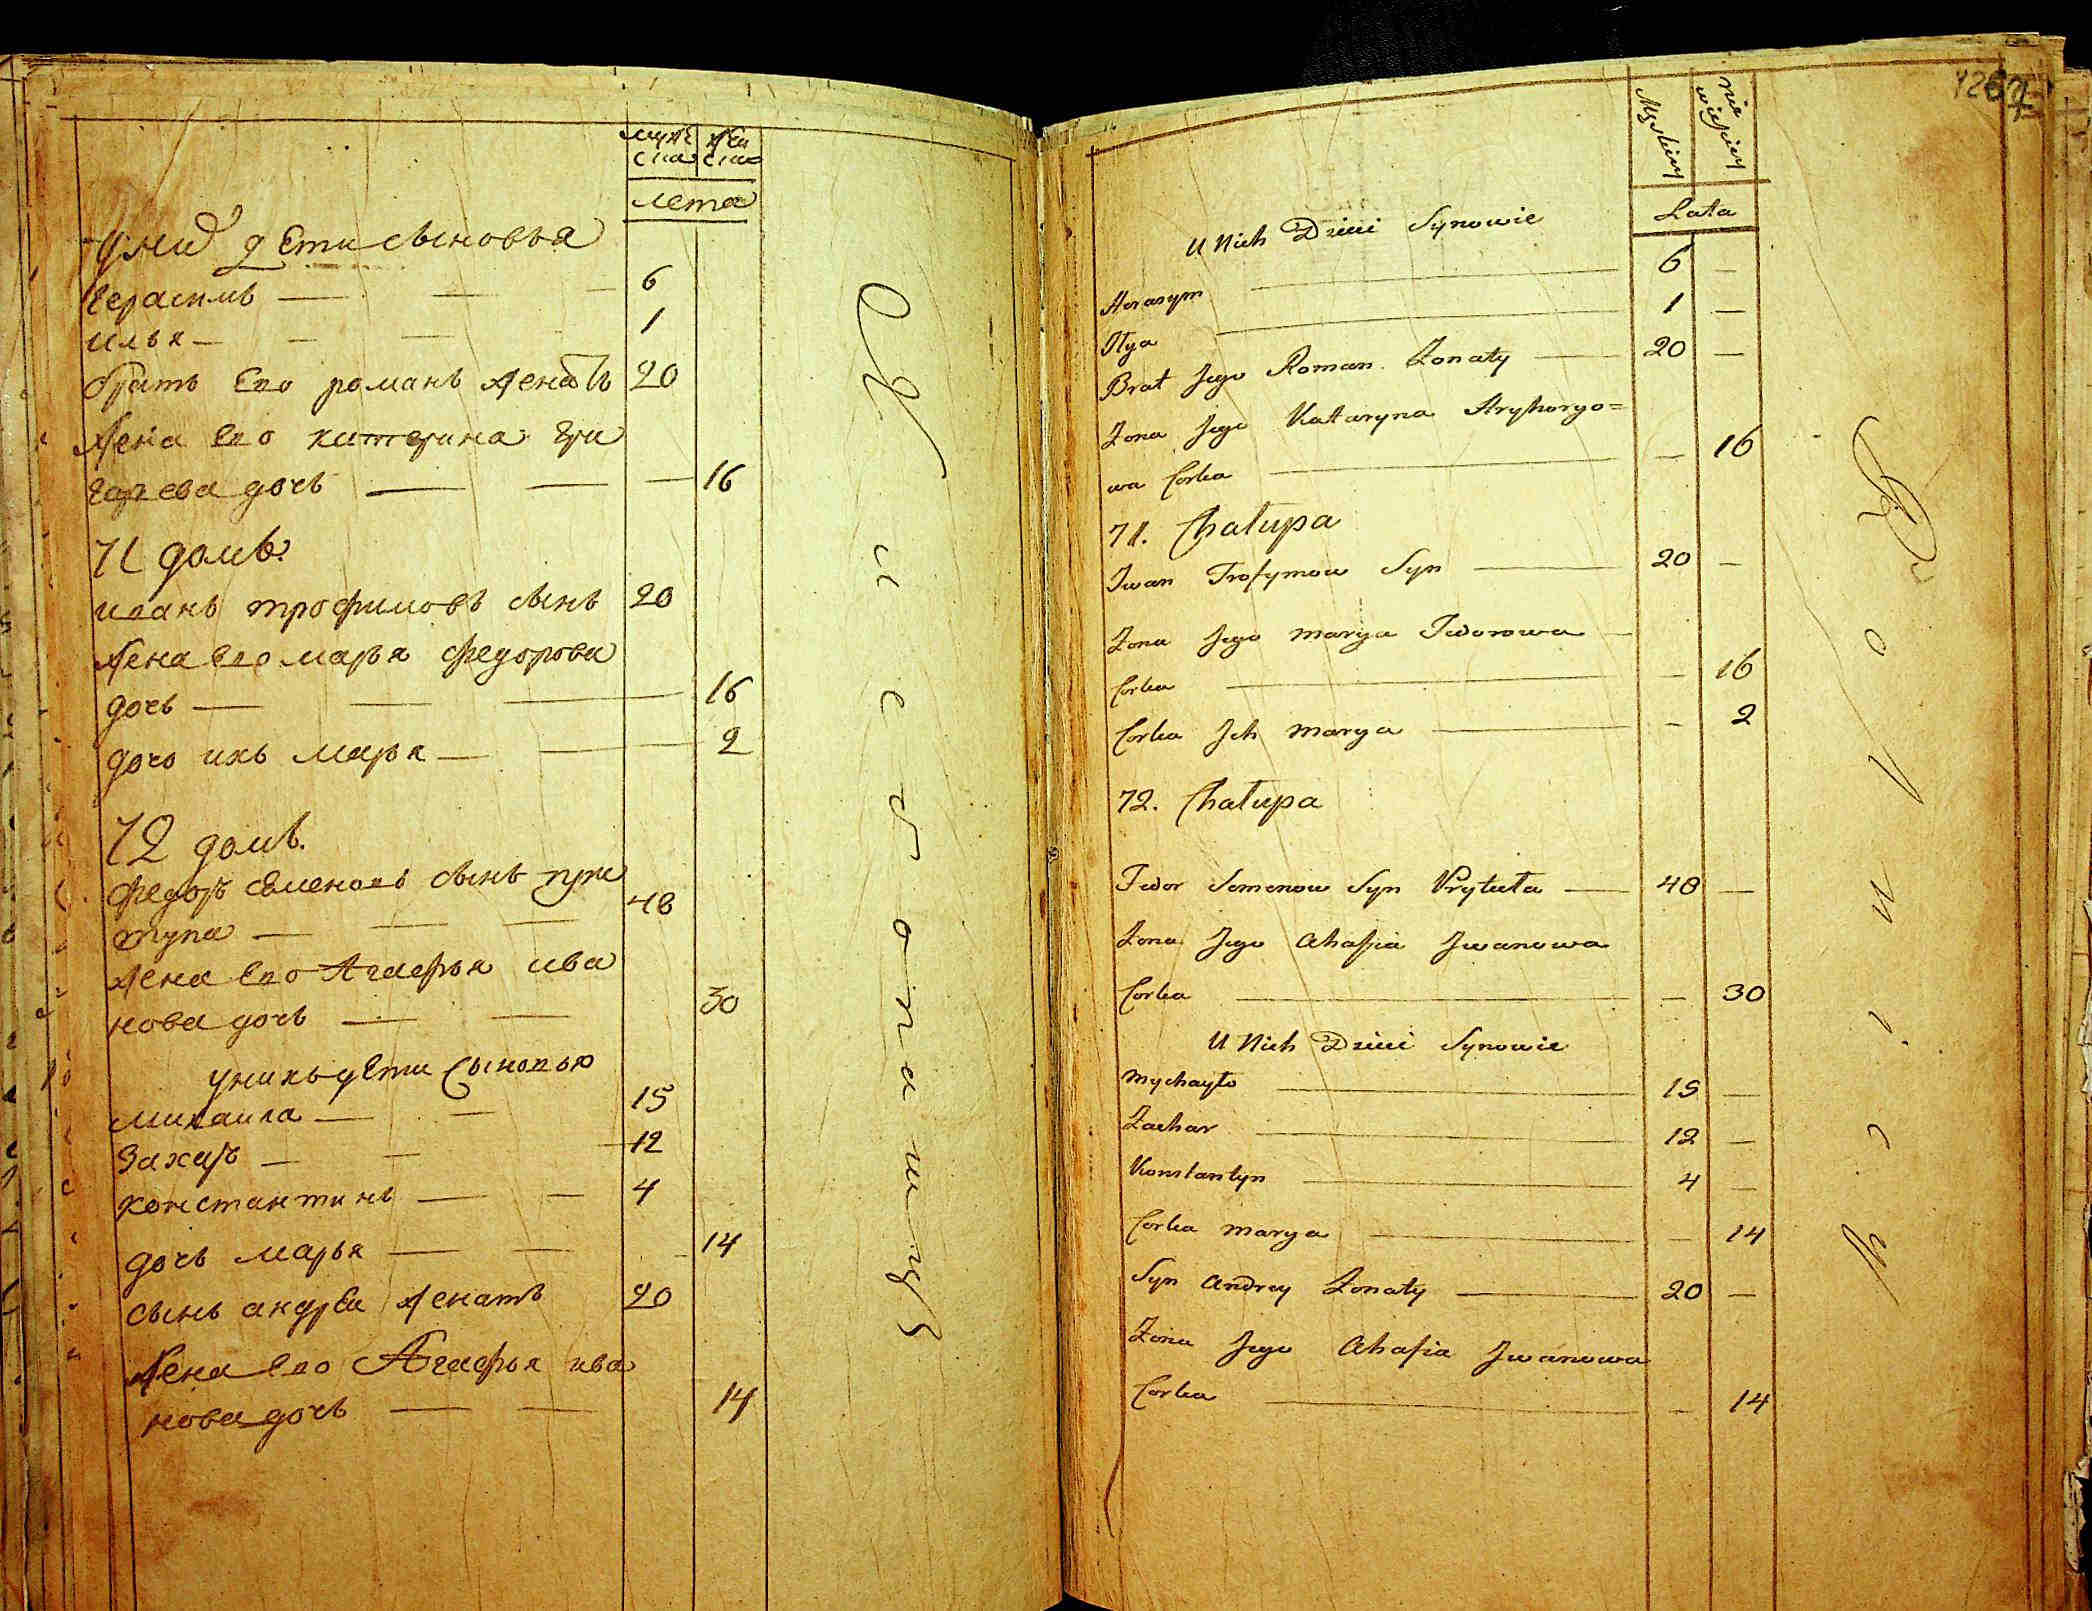 муже ска
жен ска
лета
у них дети сыновья
герасимъ 6
илья 1
братъ его романъ женатъ 20
жена его катерина гри
гарьева дочь 16
71 домъ.
иванъ трофимовъ сынъ 20
жена его марья федорова
дочь 16
дочь ихъ марья 2
72 домъ.
федоръ семеновъ сынъ при
тула 48
жена его Агафья ива
нова дочь 30
у нихъ дети сыновья
михаила 15
Захаръ 12
константинъ 4
дочь марья 14
сынъ андрей женатъ 20
жена его Агафья ива
нова дочь 14
Męskiey
nie wieśćiey
Lata
U Nich Dzieci Synowie
Harasym 6 —
Ilya 1 —
Brat Jego Roman Zonaty 20 —
Zona Jego Kataryna Hryhoryo=
wa Corka — 16
71. Chałupa
Iwan Trofymow Syn 20 —
Zona Jego Marya Fedorowa
Corka — 16
Corka Ich Marya — 2
72. Chałupa
Fedor Semenow Syn Prytuła 48 —
Zona Jego Ahafia Iwanowa
Corka — 30
U Nich Dzieci Synowie
Mychayło 15 —
Zachar 12 —
Konstantyn 4 —
Corka Marya — 14
Syn Andrey Zonaty 20 —
Zona Jego Ahafia Iwanowa
Corka — 14